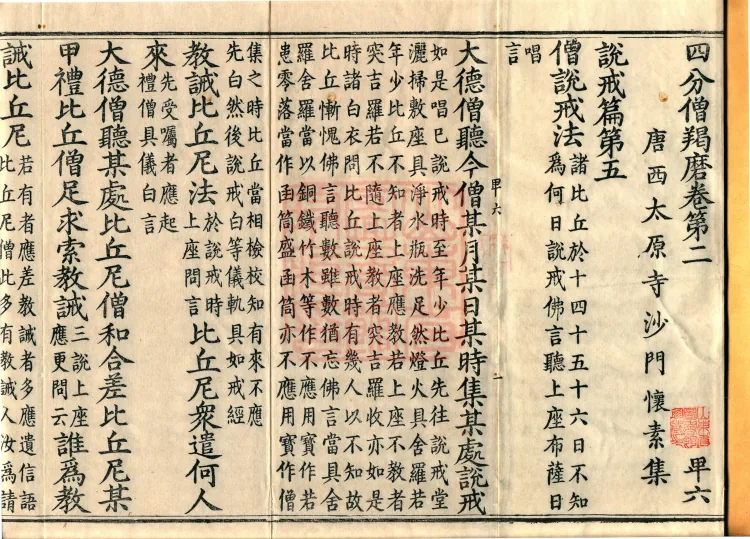 四分僧羯磨卷第二 甲六
唐西太原寺沙門懷素集
說戒篇第五
僧說戒法
諸比丘於十四十五十六日不知
為何日說戒佛言聽上座布薩日
唱
言
甲六 一
大德僧聽今僧某月某日某時集某處說戒
如是唱已說戒時至年少比丘先往說戒堂
灑掃敷座具淨水瓶洗足然燈火具舍羅若
年少比丘不知者上座應教若上座不教者
突吉羅若不隨上座教者突吉羅收亦如是
時諸白衣問比丘說戒時有幾人以不知故
比丘慚愧佛言聽數雖數猶忘佛言當具舍
羅舍羅當以銅鐵竹木等作不應用寶作若
患零落當作函筒盛函筒亦不應用寶作僧
集之時比丘當相檢校知有來不應
先白然後說戒白等儀軌具如戒經
教誡比丘尼法
於說戒時
上座問言
比丘尼眾遣何人
來
先受囑者應起
禮僧具儀白言
大德僧聽某處比丘尼僧和合差比丘尼某
甲禮比丘僧足求索教誡
三說上座
應更問云
誰為教
誡比丘尼
若有者應差教誡者多應遣信語
比丘尼僧此多有教誡人汝為請